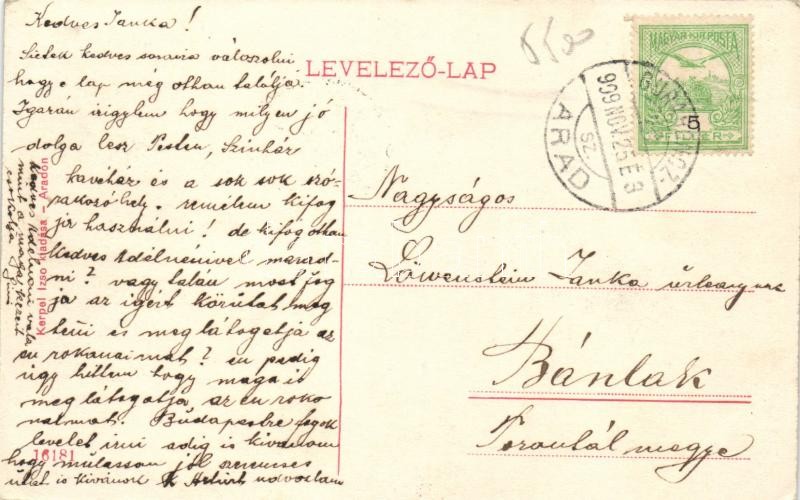 Kedves Janka!
Sietek kedves soraira válaszolni
hogy e lap még otthan találja.
Igazán irigylem hogy milyen jó
dolga lesz Pesten, Szinház
kávéház és a sok sok szó-
rakozóhely. remélem kifog
ja használni! de kifog otthan
Kedves Adélnénivel marad-
ni? vagy talán most fog
ja az igért körútat meg
tenni és meglátogatja az
én rokonaimat? én pedig
úgy hittem hogy maga is
meglátogatja az én roko
naimat. Budapestre fogok
levelet irni adig is kivánom
hogy mulasson jól szerencsés
útat is kivánok Artúrt üdvözlöm
Kedves Adélnéni vala
mint a maga kezeit
csókolja
Kerpel Izsó kiadása Aradon
16181
LEVELEZŐ-LAP
MAGYAR KIR. POSTA
5
FILLÉR
ARAD
SZ.
909 NOV. 25 É 3
Nagyságos
Löwenstein Janka úrleánynak
Bánlak
Torontál megye